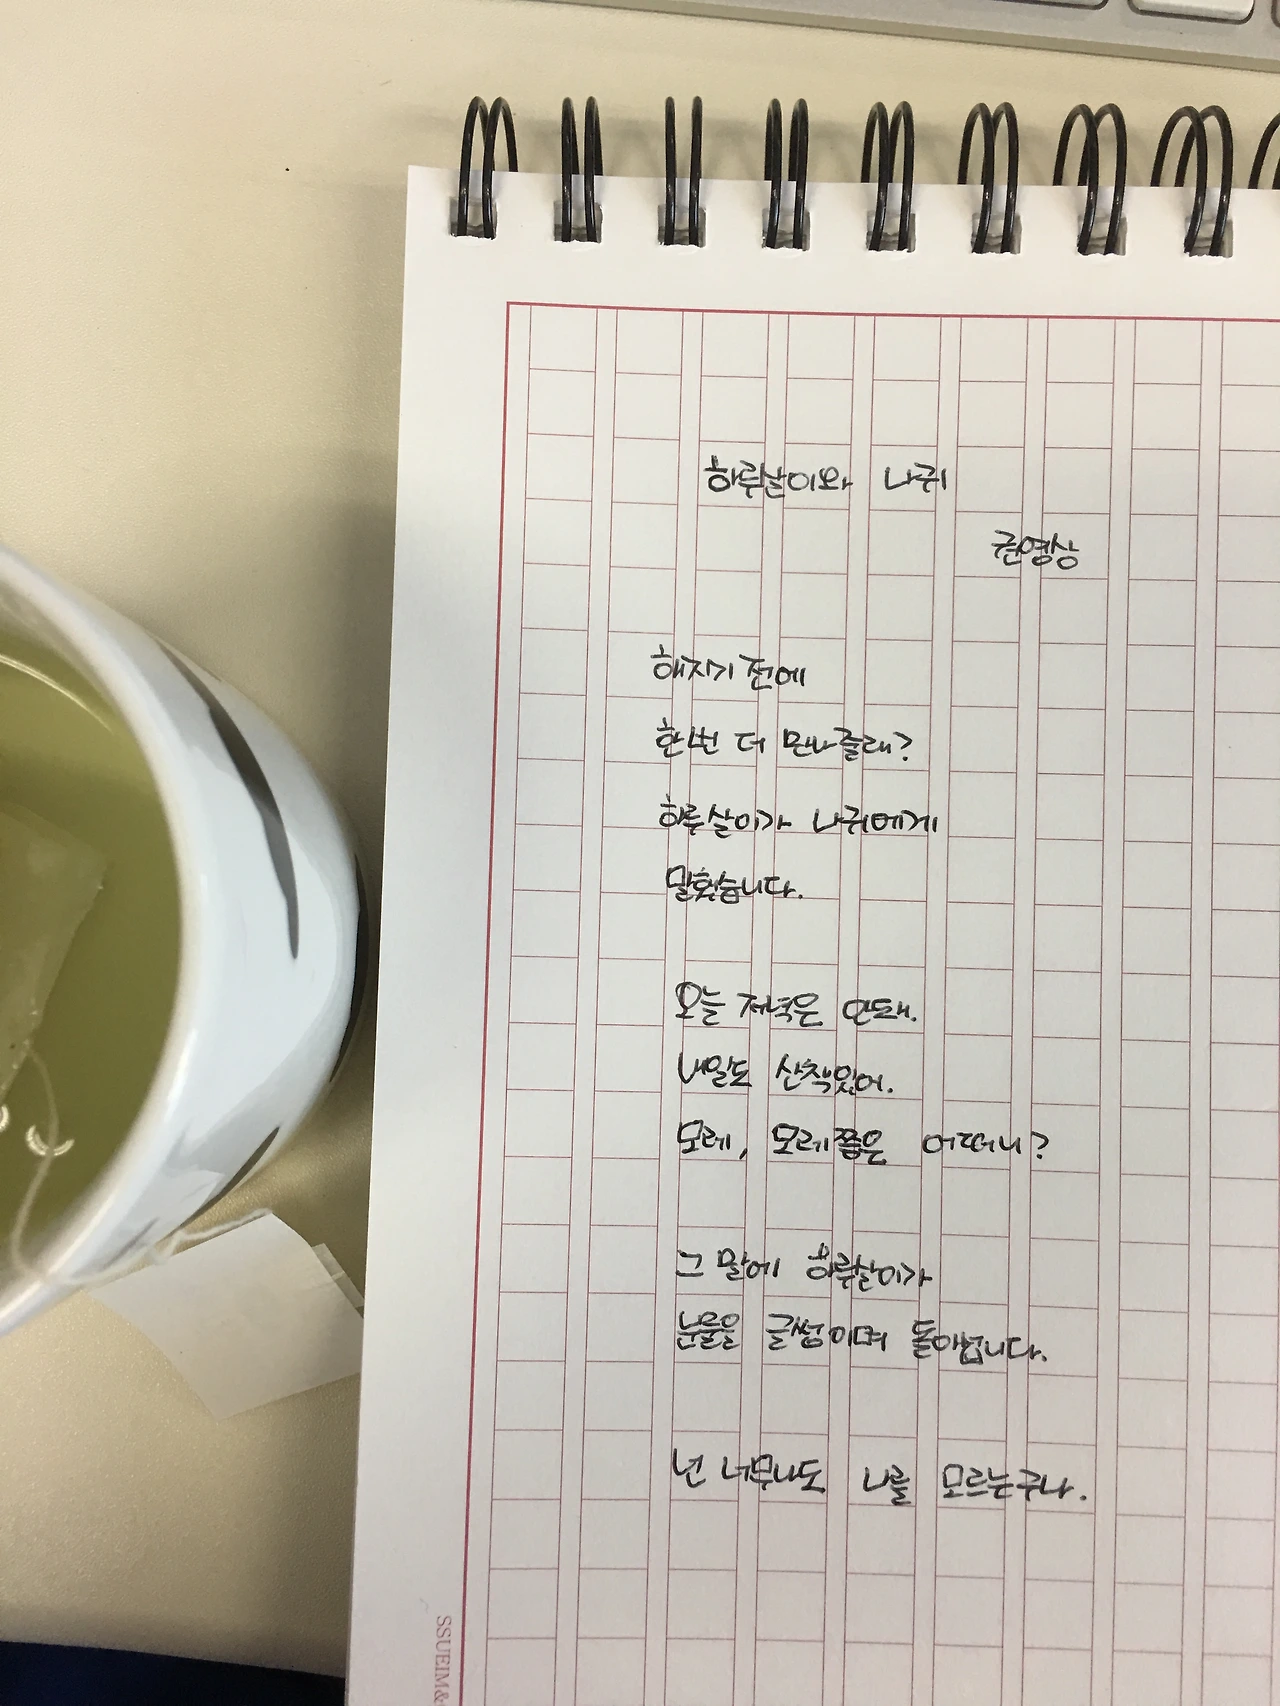 하루살이와 나귀
권영상
해지기 전에
한번 더 만나줄래?
하루살이가 나귀에게
말했습니다.
오늘 저녁은 안돼.
내일도 산책있어.
모레, 모레쯤은 어떠니?
그 말에 하루살이가
눈물을 글썽이며 돌아섭니다.
넌 너무나도 나를 모르는구나.
SSUEIM&